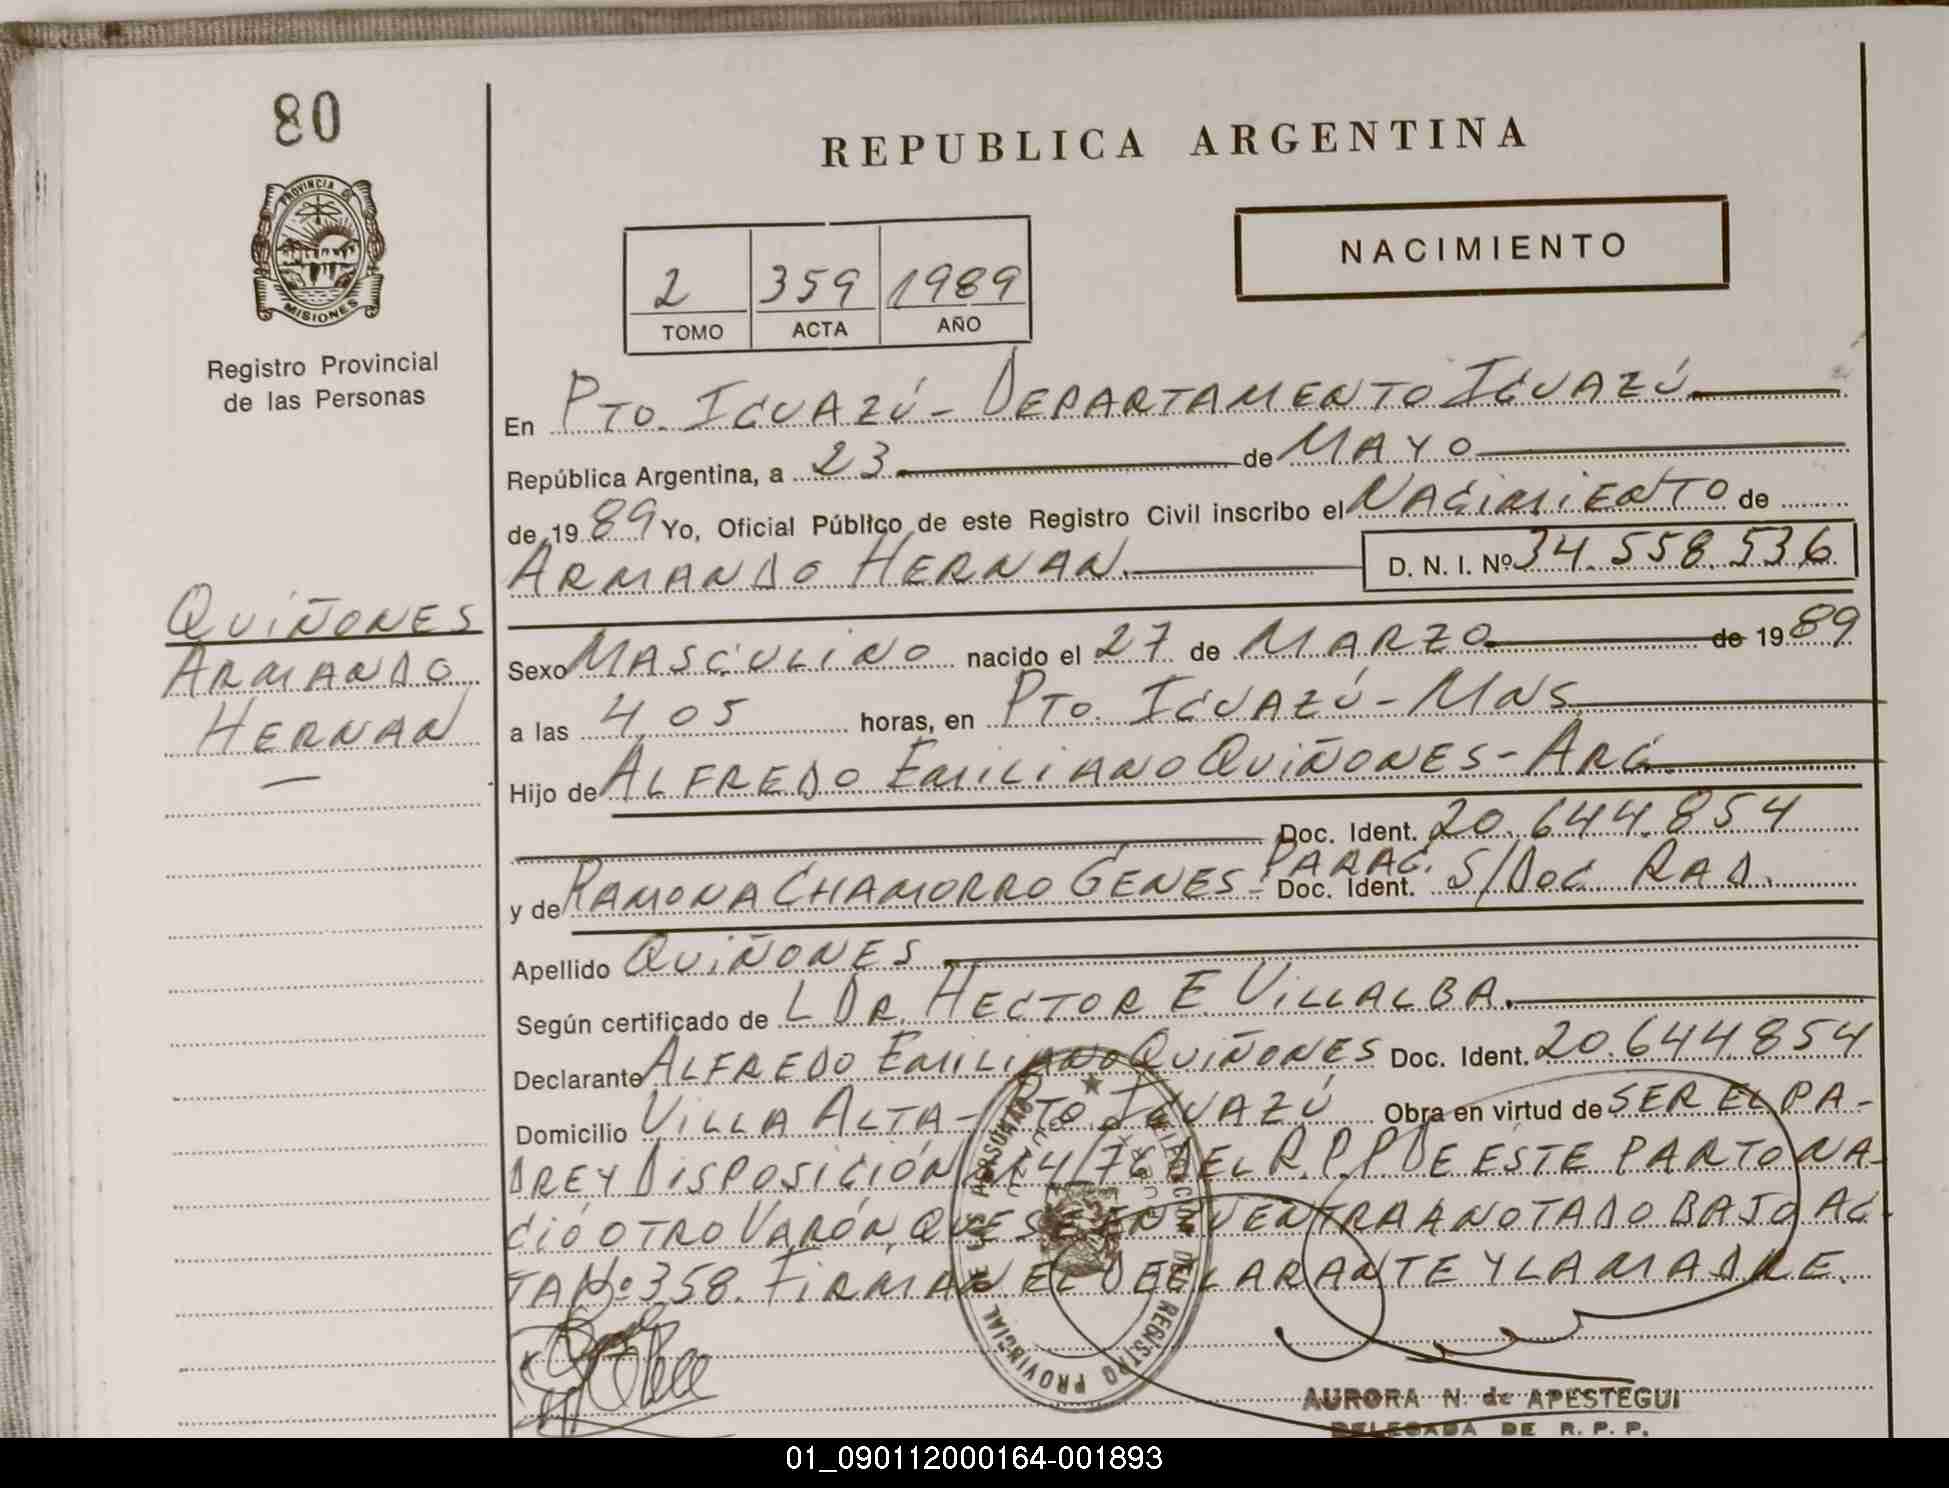 80
PROVINCIA DE
MISIONES
Registro Provincial
de las Personas
QUIÑONES
ARMANDO
HERNAN
REPUBLICA ARGENTINA
NACIMIENTO
2 359 1989
TOMO ACTA AÑO
En PTO. IGUAZÚ - DEPARTAMENTO IGUAZÚ
República Argentina, a 23 de MAYO
de 1989 Yo, Oficial Público de este Registro Civil inscribo el NACIMIENTO de
ARMANDO HERNAN. D. N. I. Nº 34.558.536
Sexo MASCULINO nacido el 27 de MARZO de 1989
a las 4,05 horas, en PTO. IGUAZÚ - MNS.
Hijo de ALFREDO EMILIANO QUIÑONES - ARG.
Doc. Ident. 20.644.854
y de RAMONA CHAMORRO GENES - PARAG. Doc. Ident. S/DOC. RAD.
Apellido QUIÑONES
Según certificado de L DR. HECTOR E. VILLALBA.
Declarante ALFREDO EMILIANO QUIÑONES Doc. Ident. 20.644.854
Domicilio VILLA ALTA - PTO. IGUAZÚ Obra en virtud de SER EL PA-
DRE Y DISPOSICIÓN 14/76 DEL R.P.P DE ESTE PARTO NA-
CIÓ OTRO VARÓN, QUE SE ENCUENTRA ANOTADO BAJO AC-
TA Nº 358. FIRMAN EL DECLARANTE Y LA MADRE.
REGISTRO PROVINCIAL DE LAS PERSONAS
AURORA N. de APESTEGUI
DELEGADA DE R. P. P.
01_090112000164-001893